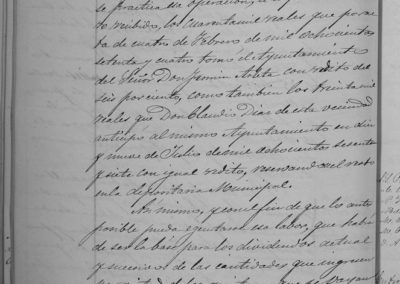 se practica esa operación,
to recibido, los cuarenta mil reales que por ac
ta de cuatro de Febrero de mil ochocientos
setenta y cuatro tomó el Ayuntamiento
del Señor Don Fermin Arteta con redito del
seis por ciento, como tambien los treinta mil
reales que Don Claudio Dias de esta vecindad
anticipó al mismo Ayuntamiento en diez
y nueve de Julio de mil ochocientos sesenta
y siete con igual redito, reservando el resto
en la depositaria Municipal.
Asi mismo, y con el fin de que lo antes
posible pueda ejecutarse esa labor, que habrá
de ser la base para los dividendos actual
y sucesivos de las cantidades que ingresen